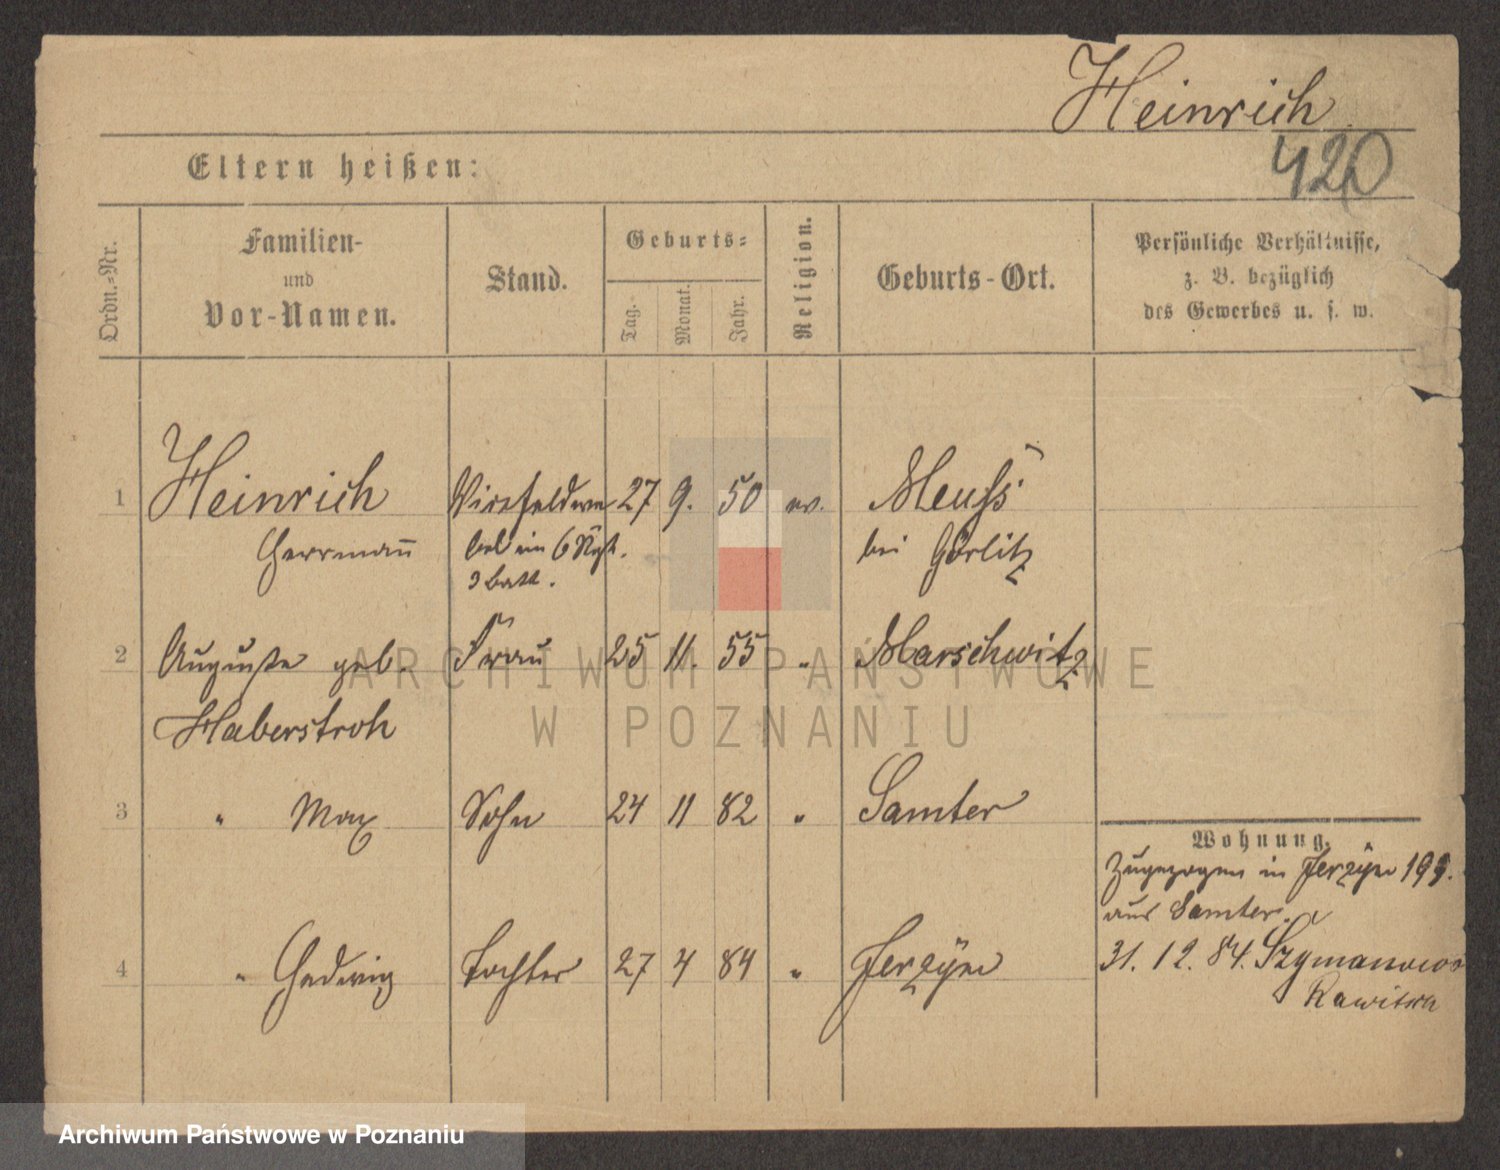 Heinrich
420
Eltern heißen:
Ordn.-Nr.
Familien-
und
Vor-Namen.
Stand.
Geburts-
Tag.
Monat.
Jahr.
Religion.
Geburts-Ort.
Persönliche Verhältnisse,
z. B. bezüglich
des Gewerbes u. s. w.
1 Heinrich 27 9. 50 ev. Meuss
Herrmann 6 bei Görlitz
3 Batt.
2 Auguste geb. Frau 25 11. 55 " Marschwitz
Haberstroh
3 " Max Sohn 24 11 82 " Samter
Wohnung.
Zugezogen in Jerzyce
aus Samter.
4 " Hedwig Tochter 27 4 84 " Jerzyce
31. 12. 84. Szymanowo
Rawitsch
ARCHIWUM PAŃSTWOWE
W POZNANIU
Archiwum Państwowe w Poznaniu